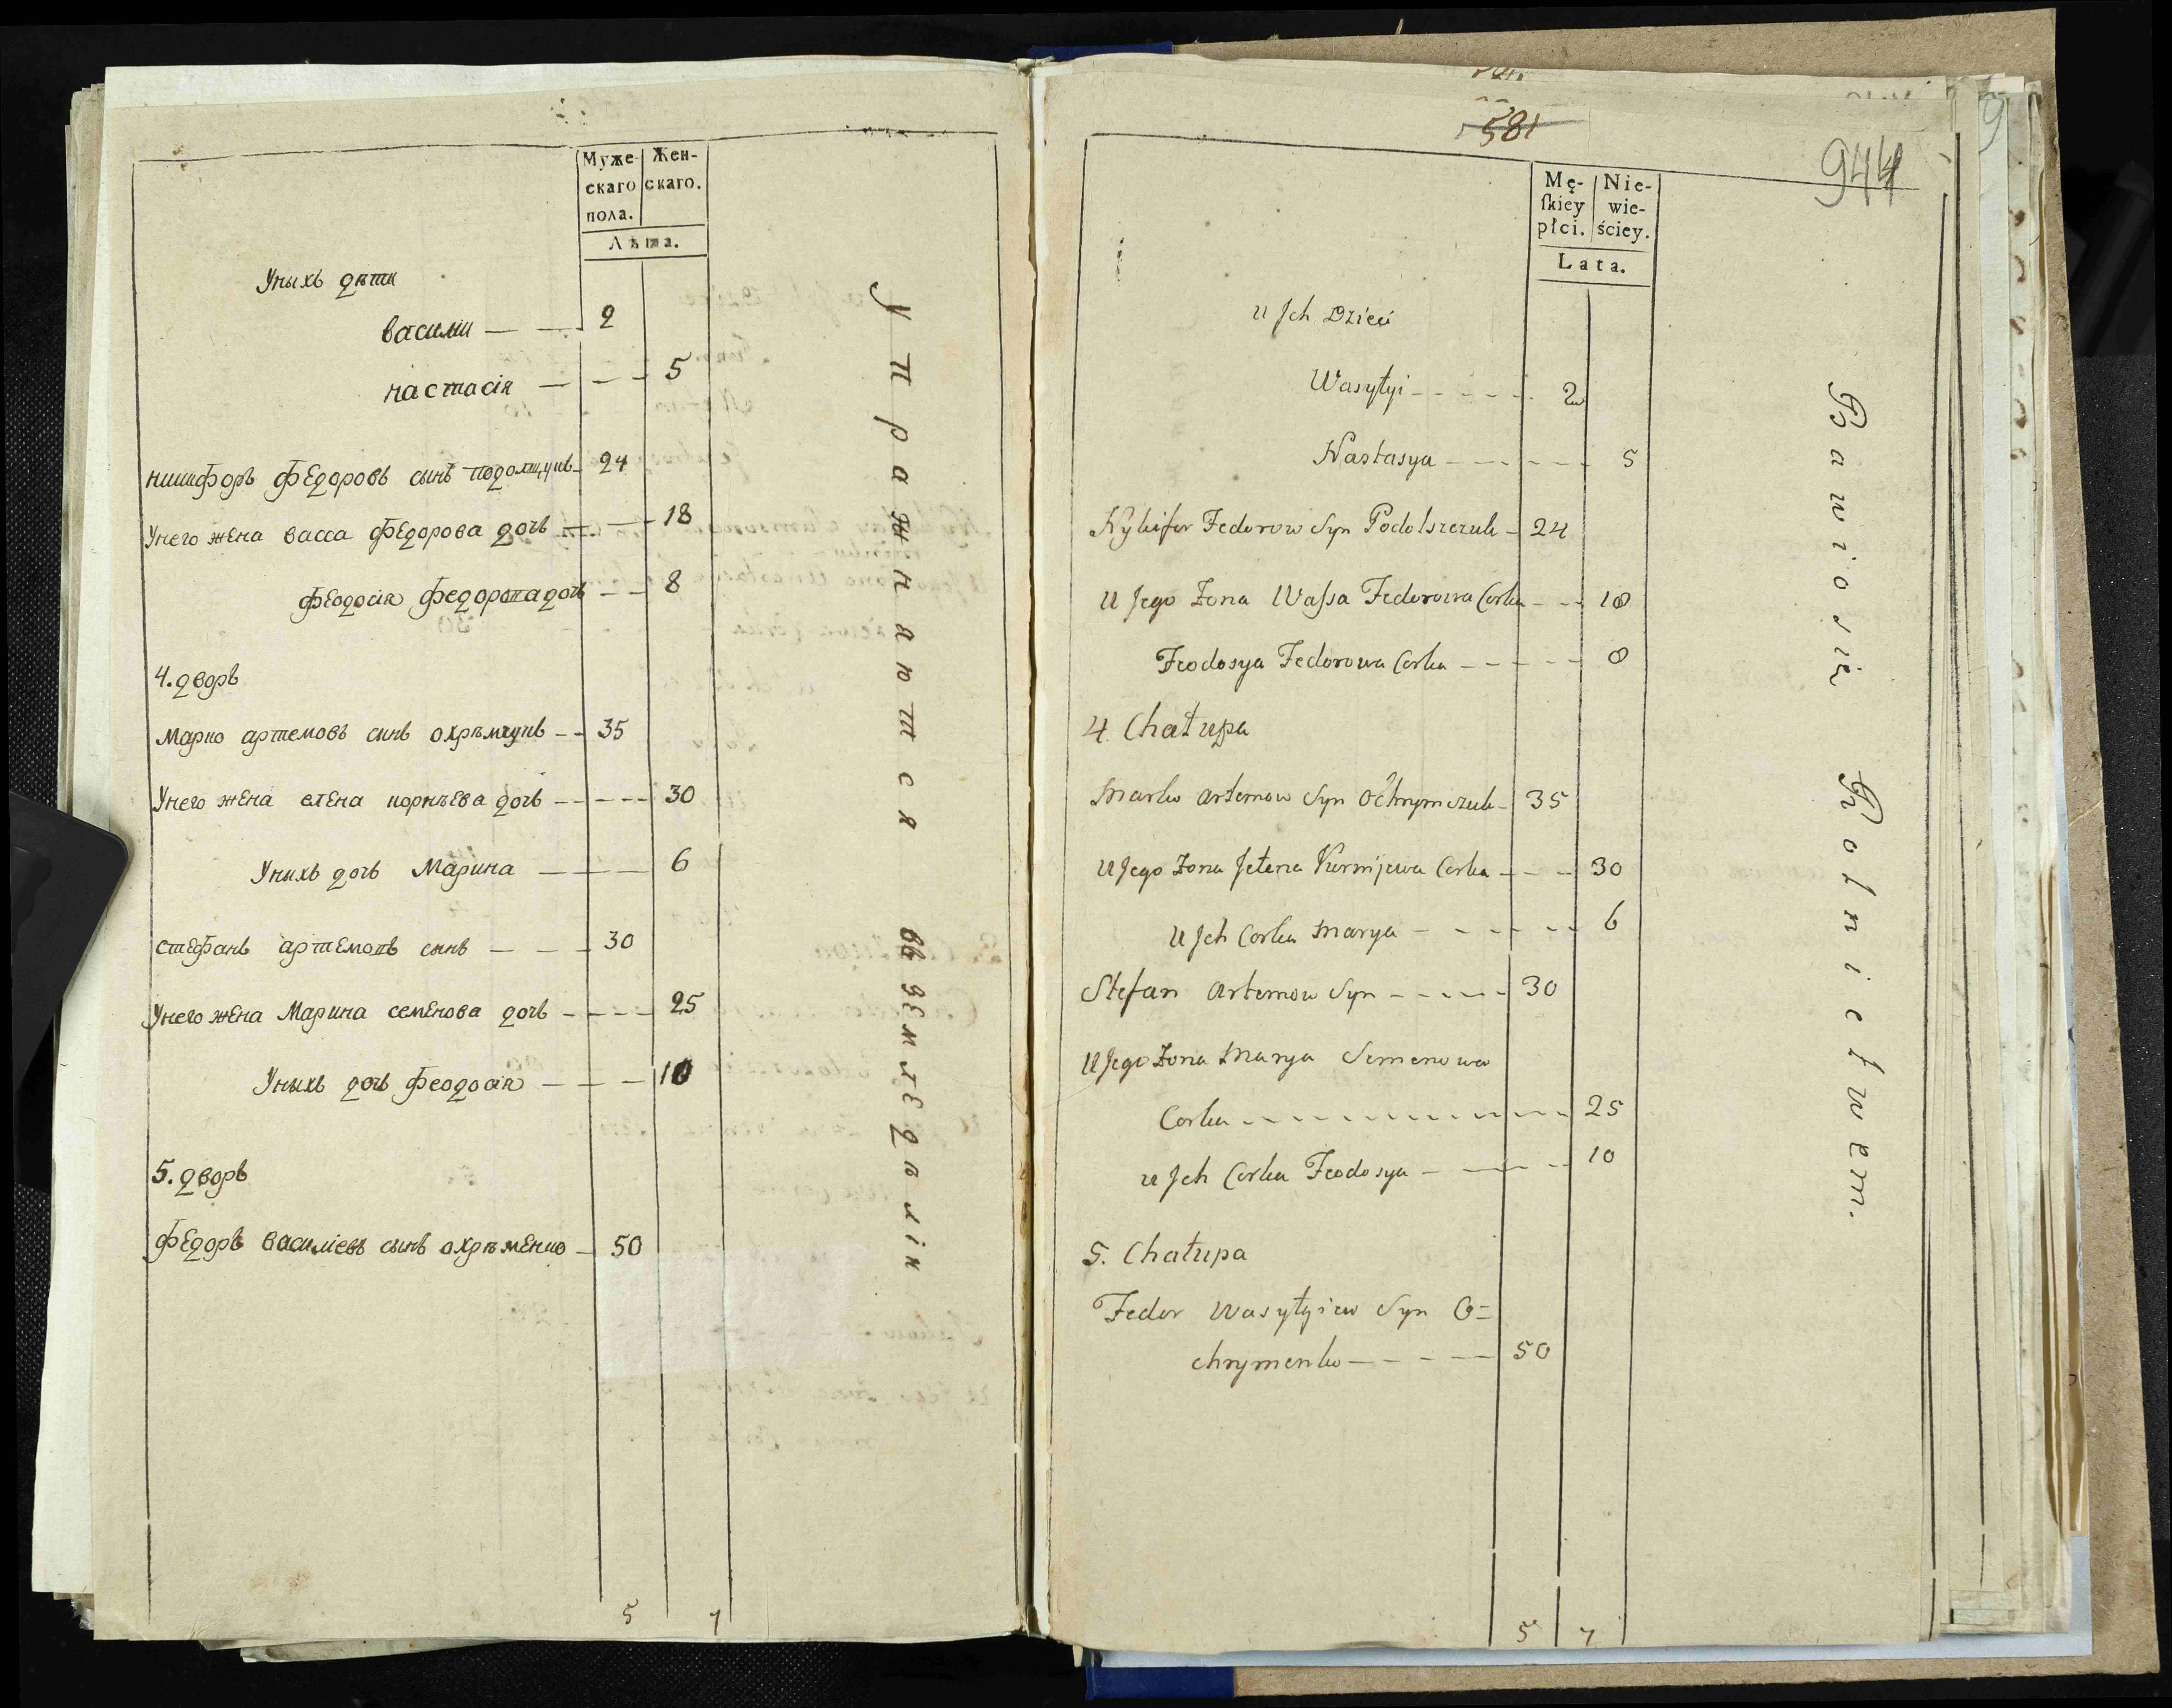 Муже-
скаго
пола.
Жен-
скаго.
Лѣта.
Уныхъ дѣти
василий — — 2
настасія — — — 5
никифоръ федоровъ сынъ подолщукъ — 24
Унего жена васса федорова дочь — — 18
феодосія федорова дочь — — 8
4. дворъ
Марко артемовъ синъ охрѣмчукъ — — 35
Унего жена елена корнѣева дочь — — — — 30
Уныхъ дочь Марина — — — 6
стефанъ артемовъ сынъ — — — 30
Унего жена Марина семенова дочь — — — — 25
Уныхъ дочь феодосія — — — 10
5. дворъ
федоръ василіевъ сынъ охрѣменко — 50
5 7
Упражнаются въ земледѣлій
581
944
Mę-
ſkiey
płci.
Nie-
wie-
ściey.
Lata.
u Jch Dzieci
Wasyłyi - - - - - 2
Nastasya - - - - - 5
Nykifor Fedorow Syn Podolszczuk - 24
U Jego Żona Waſsa Fedorowa Corka - - - 18
Feodosya Fedorowa Corka - - - - - 8
4 Chałupa
Marko Artemow Syn Ochrymczuk - 35
U Jego Żona Jełena Kornijewa Corka - - - 30
U Jch Corka Marya - - - - - - 6
Stefan Artemow Syn - - - - - 30
U Jego Żona Marya Semenowa
Corka - - - - - - - - - - - - 25
u Jch Corka Feodosya - - - - - 10
5. Chałupa
Fedor Wasyłyiew Syn O=
chrymenko - - - - - 50
5 7
Bawio się Rolnictwem.